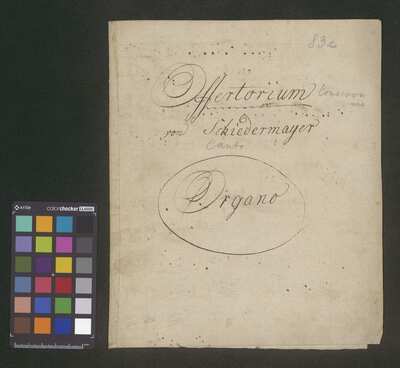 83c
Offertorium
von Schiedermayer
Canto
Organo
x-rite colorchecker CLASSIC